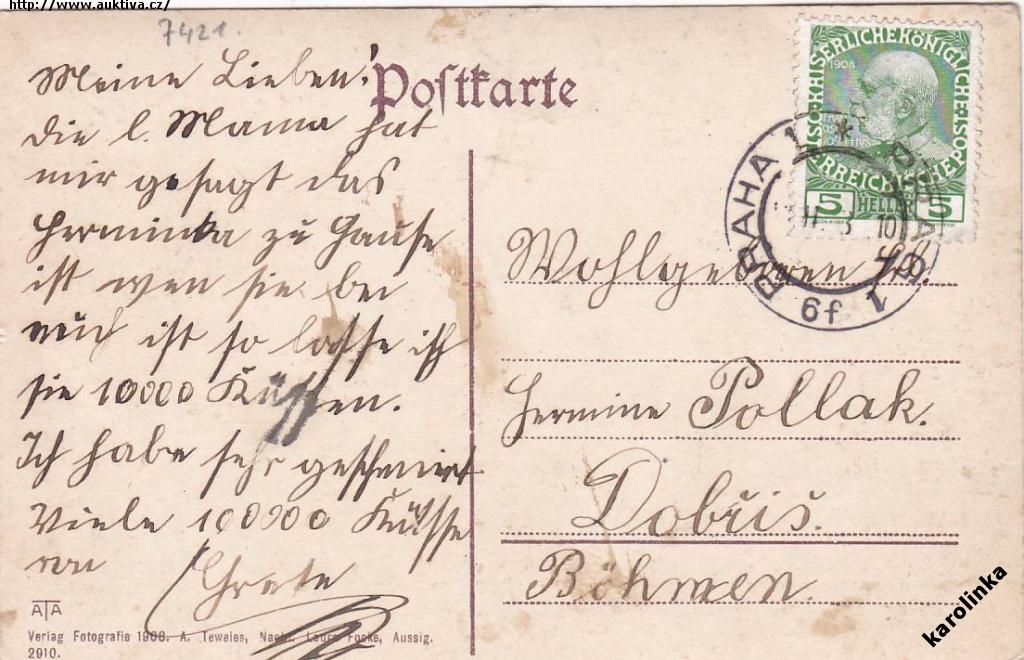 http://www.auktiva.cz/
7421.
Postkarte
Meine Lieben!
die l. Mama hat
mir gesagt das
Herminka zu Hause
ist wen sie bei
euch ist so lasse ich
sie 10000 Küssen.
Ich habe sehr geschmiert
Viele 100000 Küsse
von Grete
Wohlgeboren Frl.
Hermine Pollak.
Dobřiš.
Böhmen.
KAISERLICHE KÖNIGLICHE
1908
5 HELLER 5
PRAHA 1
6f
ATA
Verlag Fotografie 1908. A. Teweles, Nachf. Laura Focke, Aussig.
2910.
karolinka